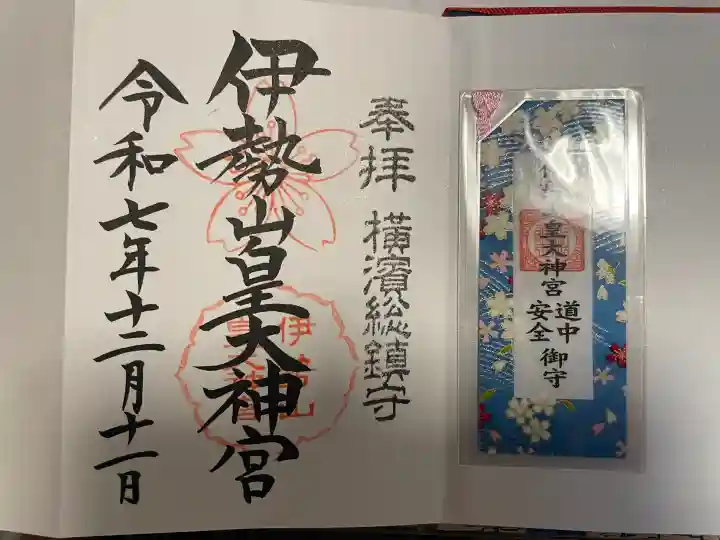 奉拝 横濱総鎮守
伊勢山皇大神宮
伊勢山皇大神宮
令和七年十二月十一日
皇大神宮
道中
安全
御守